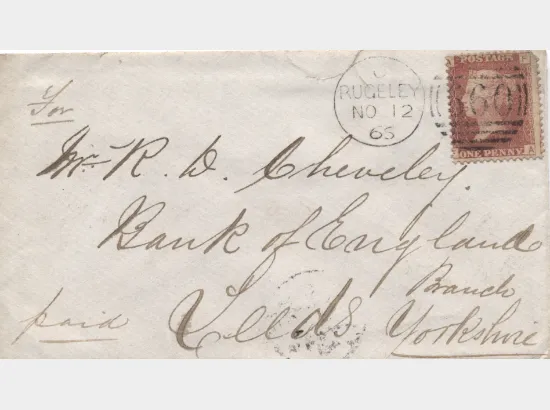 POSTAGE
RUGELEY
NO 12
65
ONE PENNY
For
Mr. R. D. Cheveley.
Bank of England
Branch
paid
Leeds Yorkshire